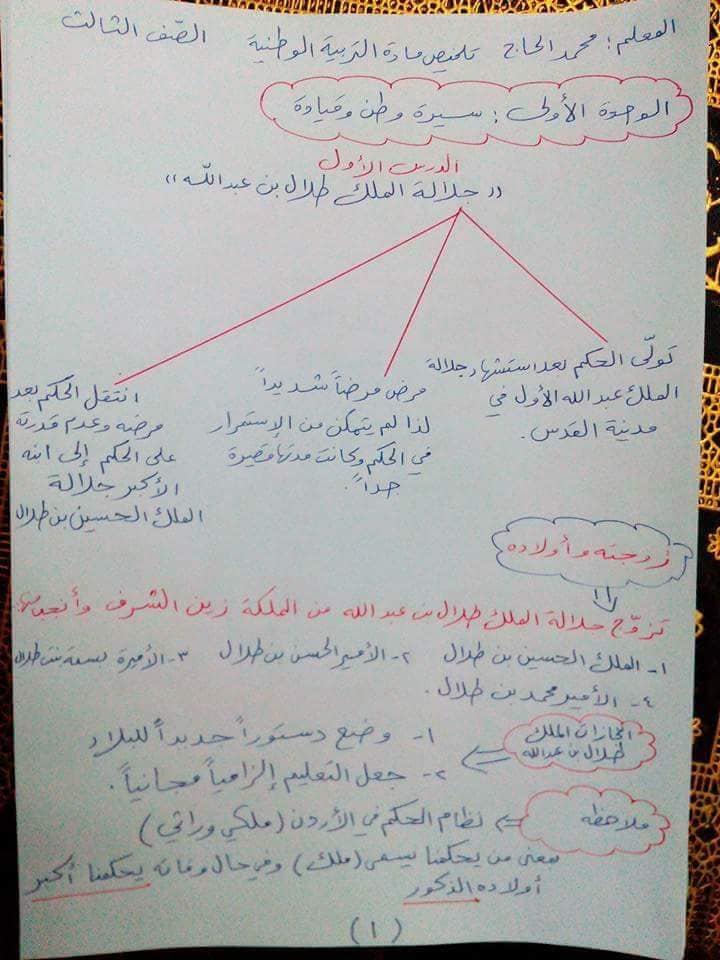 المعلم : محمد الحاج تلخيص مادة التربية الوطنية الصّف الثالث
الوحدة الأولى : سيرة وطن وقيادة
الدرس الأول
(( جلالة الملك طلال بن عبدالله ))
تولّى الحكم بعد استشهاد جلالة
الملك عبدالله الأول في
مدينة القدس.
مرض مرضاً شديداً
لذا لم يتمكن من الإستمرار
في الحكم وكانت مدتها قصيرة
جداً.
انتقل الحكم بعد
مرضه وعدم قدرته
على الحكم إلى ابنه
الأكبر جلالة
الملك الحسين بن طلال
زوجته وأولاده
تزوّج جلالة الملك طلال بن عبدالله من الملكة زين الشرف وأنجب منها:
١- الملك الحسين بن طلال ٢- الأمير الحسن بن طلال ٣- الأميرة بسمة بنت طلال
٤- الأمير محمد بن طلال.
انجازات الملك
طلال بن عبدالله
١- وضع دستوراً جديداً للبلاد
٢- جعل التعليم إلزامياً مجانياً.
ملاحظه
نظام الحكم في الأردن (ملكي وراثي)
بمعنى من يحكمنا يسمى (ملك) وفي حال وفاته يحكمنا أكبر
أولاده الذكور
(١)